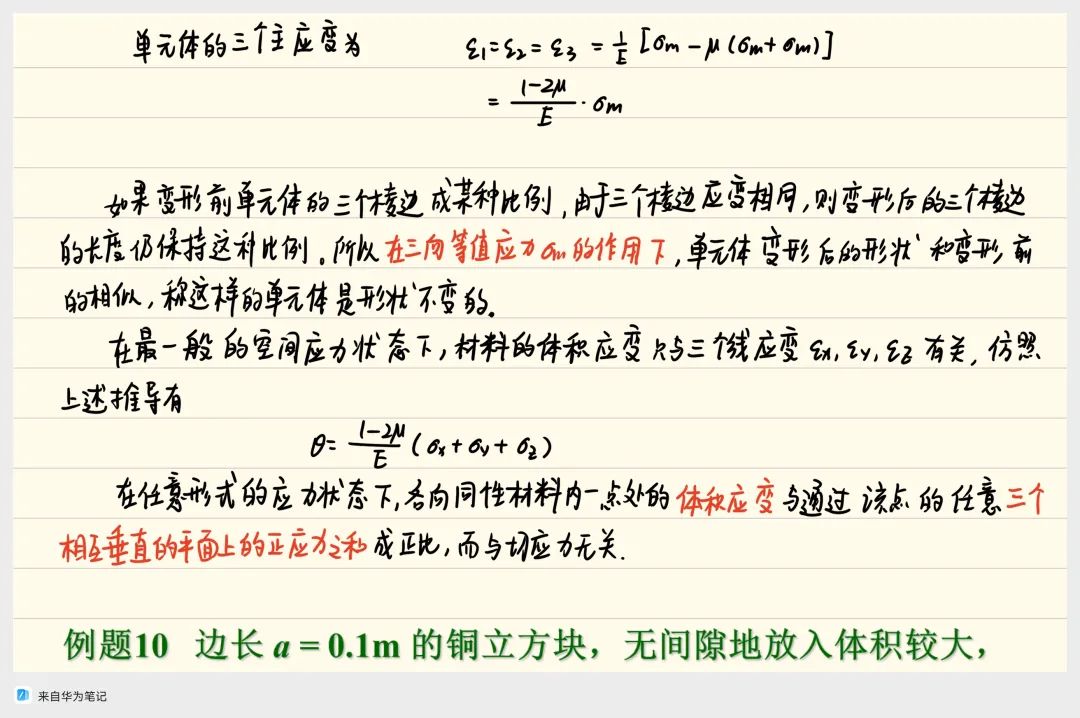 单元体的三个主应变为 ε1=ε2=ε3 = 1/E [σm-μ(σm+σm)]
= (1-2μ)/E · σm
如果变形前单元体的三个棱边成某种比例,由于三个棱边应变相同,则变形后的三个棱边
的长度仍保持这种比例。所以在三向等值应力σm的作用下,单元体变形后的形状和变形前
的相似,称这样的单元体是形状不变的。
在最一般的空间应力状态下,材料的体积应变只与三个线应变εx,εy,εz有关,仿照
上述推导有
θ= (1-2μ)/E (σx+σy+σz)
在任意形式的应力状态下,各向同性材料内一点处的体积应变与通过该点的任意三个
相互垂直的平面上的正应力之和成正比,而与切应力无关.
例题10 边长 a = 0.1m 的铜立方块,无间隙地放入体积较大,
来自华为笔记